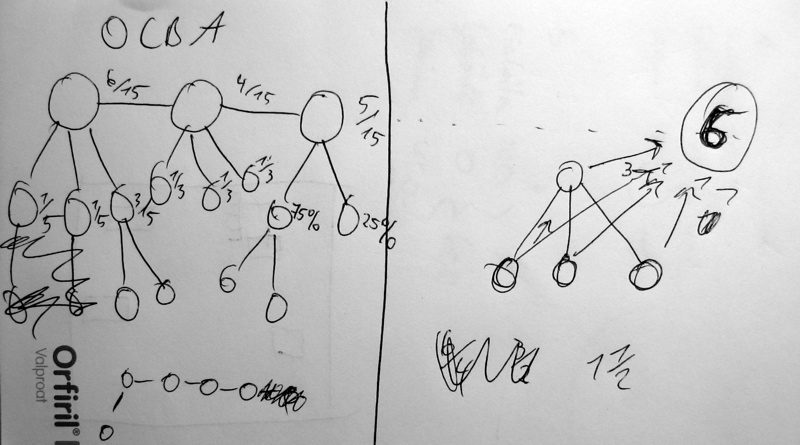 OCBA
6/15
4/15
5/15
1/5
1/5
3/15
1/3
1/3
1/3
75%
25%
6
Orfiril®
Valproat
6
3
1 1/2